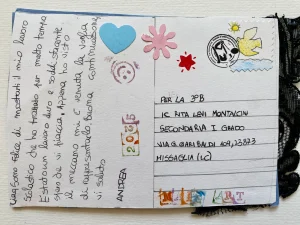 Ciao sono felice di mostrarti il mio lavoro
scolastico che ho trattato per molto tempo
È stato un lavoro duro e soddisfacente
spero che vi piaccia, appena ho visto
il meccanismo mi è venuta la voglia
di rappresentarlo. Buona continuazione
vi saluto
ANDREA
2025
PER LA 3ªB
IC RITA LEVI MONTALCINI
SECONDARIA I GRADO
VIA G. GARIBALDI 109, 23873
MISSAGLIA (LC)
MAIL ART